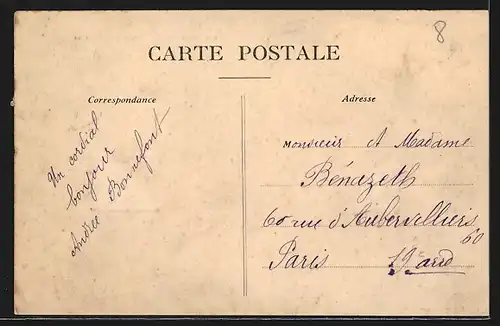 8
CARTE POSTALE
Correspondance
Adresse
Un cordial
bonjour
Andrée Bonnefont
Monsieur et Madame
Bénazeth
60 rue d'Aubervilliers
60
Paris 19 ard